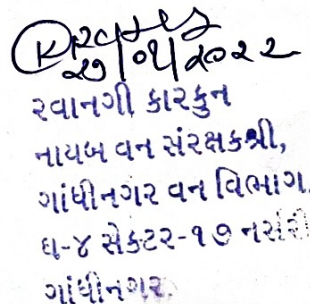 27/01/2022
રવાનગી કારકુન
નાયબ વન સંરક્ષકશ્રી,
ગાંધીનગર વન વિભાગ,
ઘ-૪ સેક્ટર-૧૭ નર્સરી
ગાંધીનગર